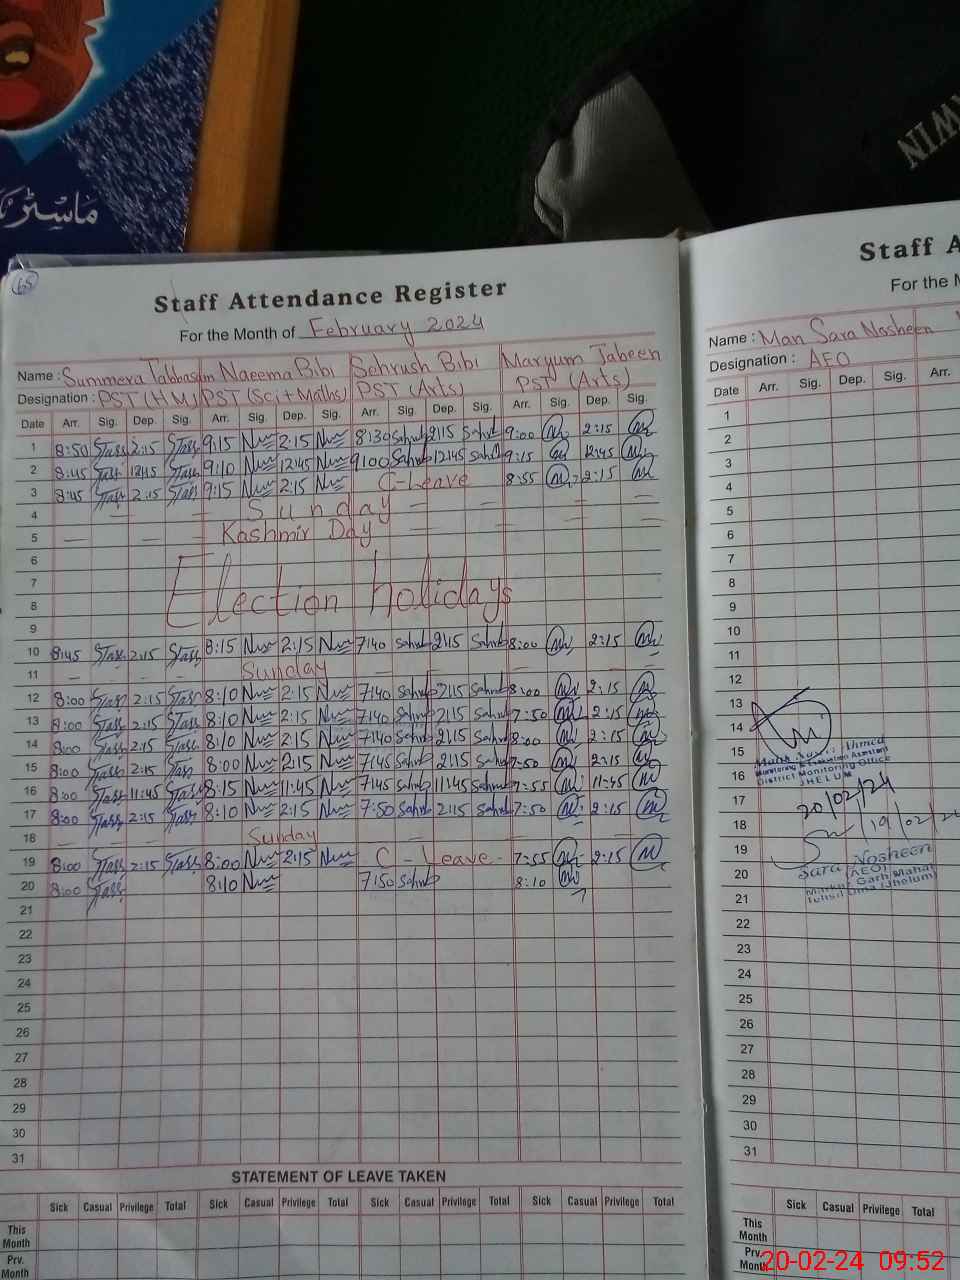 ماسٹر
WIN
65
Staff Attendance Register
For the Month of February 2024
Name : Summera Tabbasum Naeema Bibi Sehrush Bibi Maryum Jabeen
Designation : PST (HM) PST (Sci + Maths) PST (Arts) PST (Arts)
Date Arr. Sig. Dep. Sig. Arr. Sig. Dep. Sig. Arr. Sig. Dep. Sig. Arr. Sig. Dep. Sig.
1 8:50 2:15 9:15 2:15 8:30 2:15 9:00 2:15
2 8:45 12:45 9:10 12:45 9:00 12:45 9:15 12:45
3 8:45 2:15 9:15 2:15 C-Leave 8:55 2:15
4 Sunday
5 Kashmir Day
6
7 Election holidays
8
9
10 8:45 2:15 8:15 2:15 7:40 2:15 8:00 2:15
11 Sunday
12 8:00 2:15 8:10 2:15 7:40 2:15 8:00 2:15
13 8:00 2:15 8:10 2:15 7:40 2:15 7:50 2:15
14 8:00 2:15 8:10 2:15 7:40 2:15 8:00 2:15
15 8:00 2:15 8:00 2:15 7:45 2:15 7:50 2:15
16 8:00 11:45 8:15 11:45 7:45 11:45 7:55 11:45
17 8:00 2:15 8:10 2:15 7:50 2:15 7:50 2:15
18 Sunday
19 8:00 2:15 8:00 2:15 C-Leave 7:55 2:15
20 8:00 8:10 7:50 8:10
21
22
23
24
25
26
27
28
29
30
31
STATEMENT OF LEAVE TAKEN
Sick Casual Privilege Total Sick Casual Privilege Total Sick Casual Privilege Total Sick Casual Privilege Total
This Month
Prv. Month
Staff A
For the M
Name : Man Sara Nosheen
Designation : AEO
Date Arr. Sig. Dep. Sig. Arr.
1
2
3
4
5
6
7
8
9
10
11
12
13
14
15
16
17
18
19
20
21
22
23
24
25
26
27
28
29
30
31
Monitoring & Evaluation Assistant
District Monitoring Office
JHELUM
20/02/24
19/02/24
Sara Nosheen
(AEO)
Markaz Garh Mahal
Tehsil Dina (Jhelum)
Sick Casual Privilege Total
This Month
Prv. Month
20-02-24 09:52